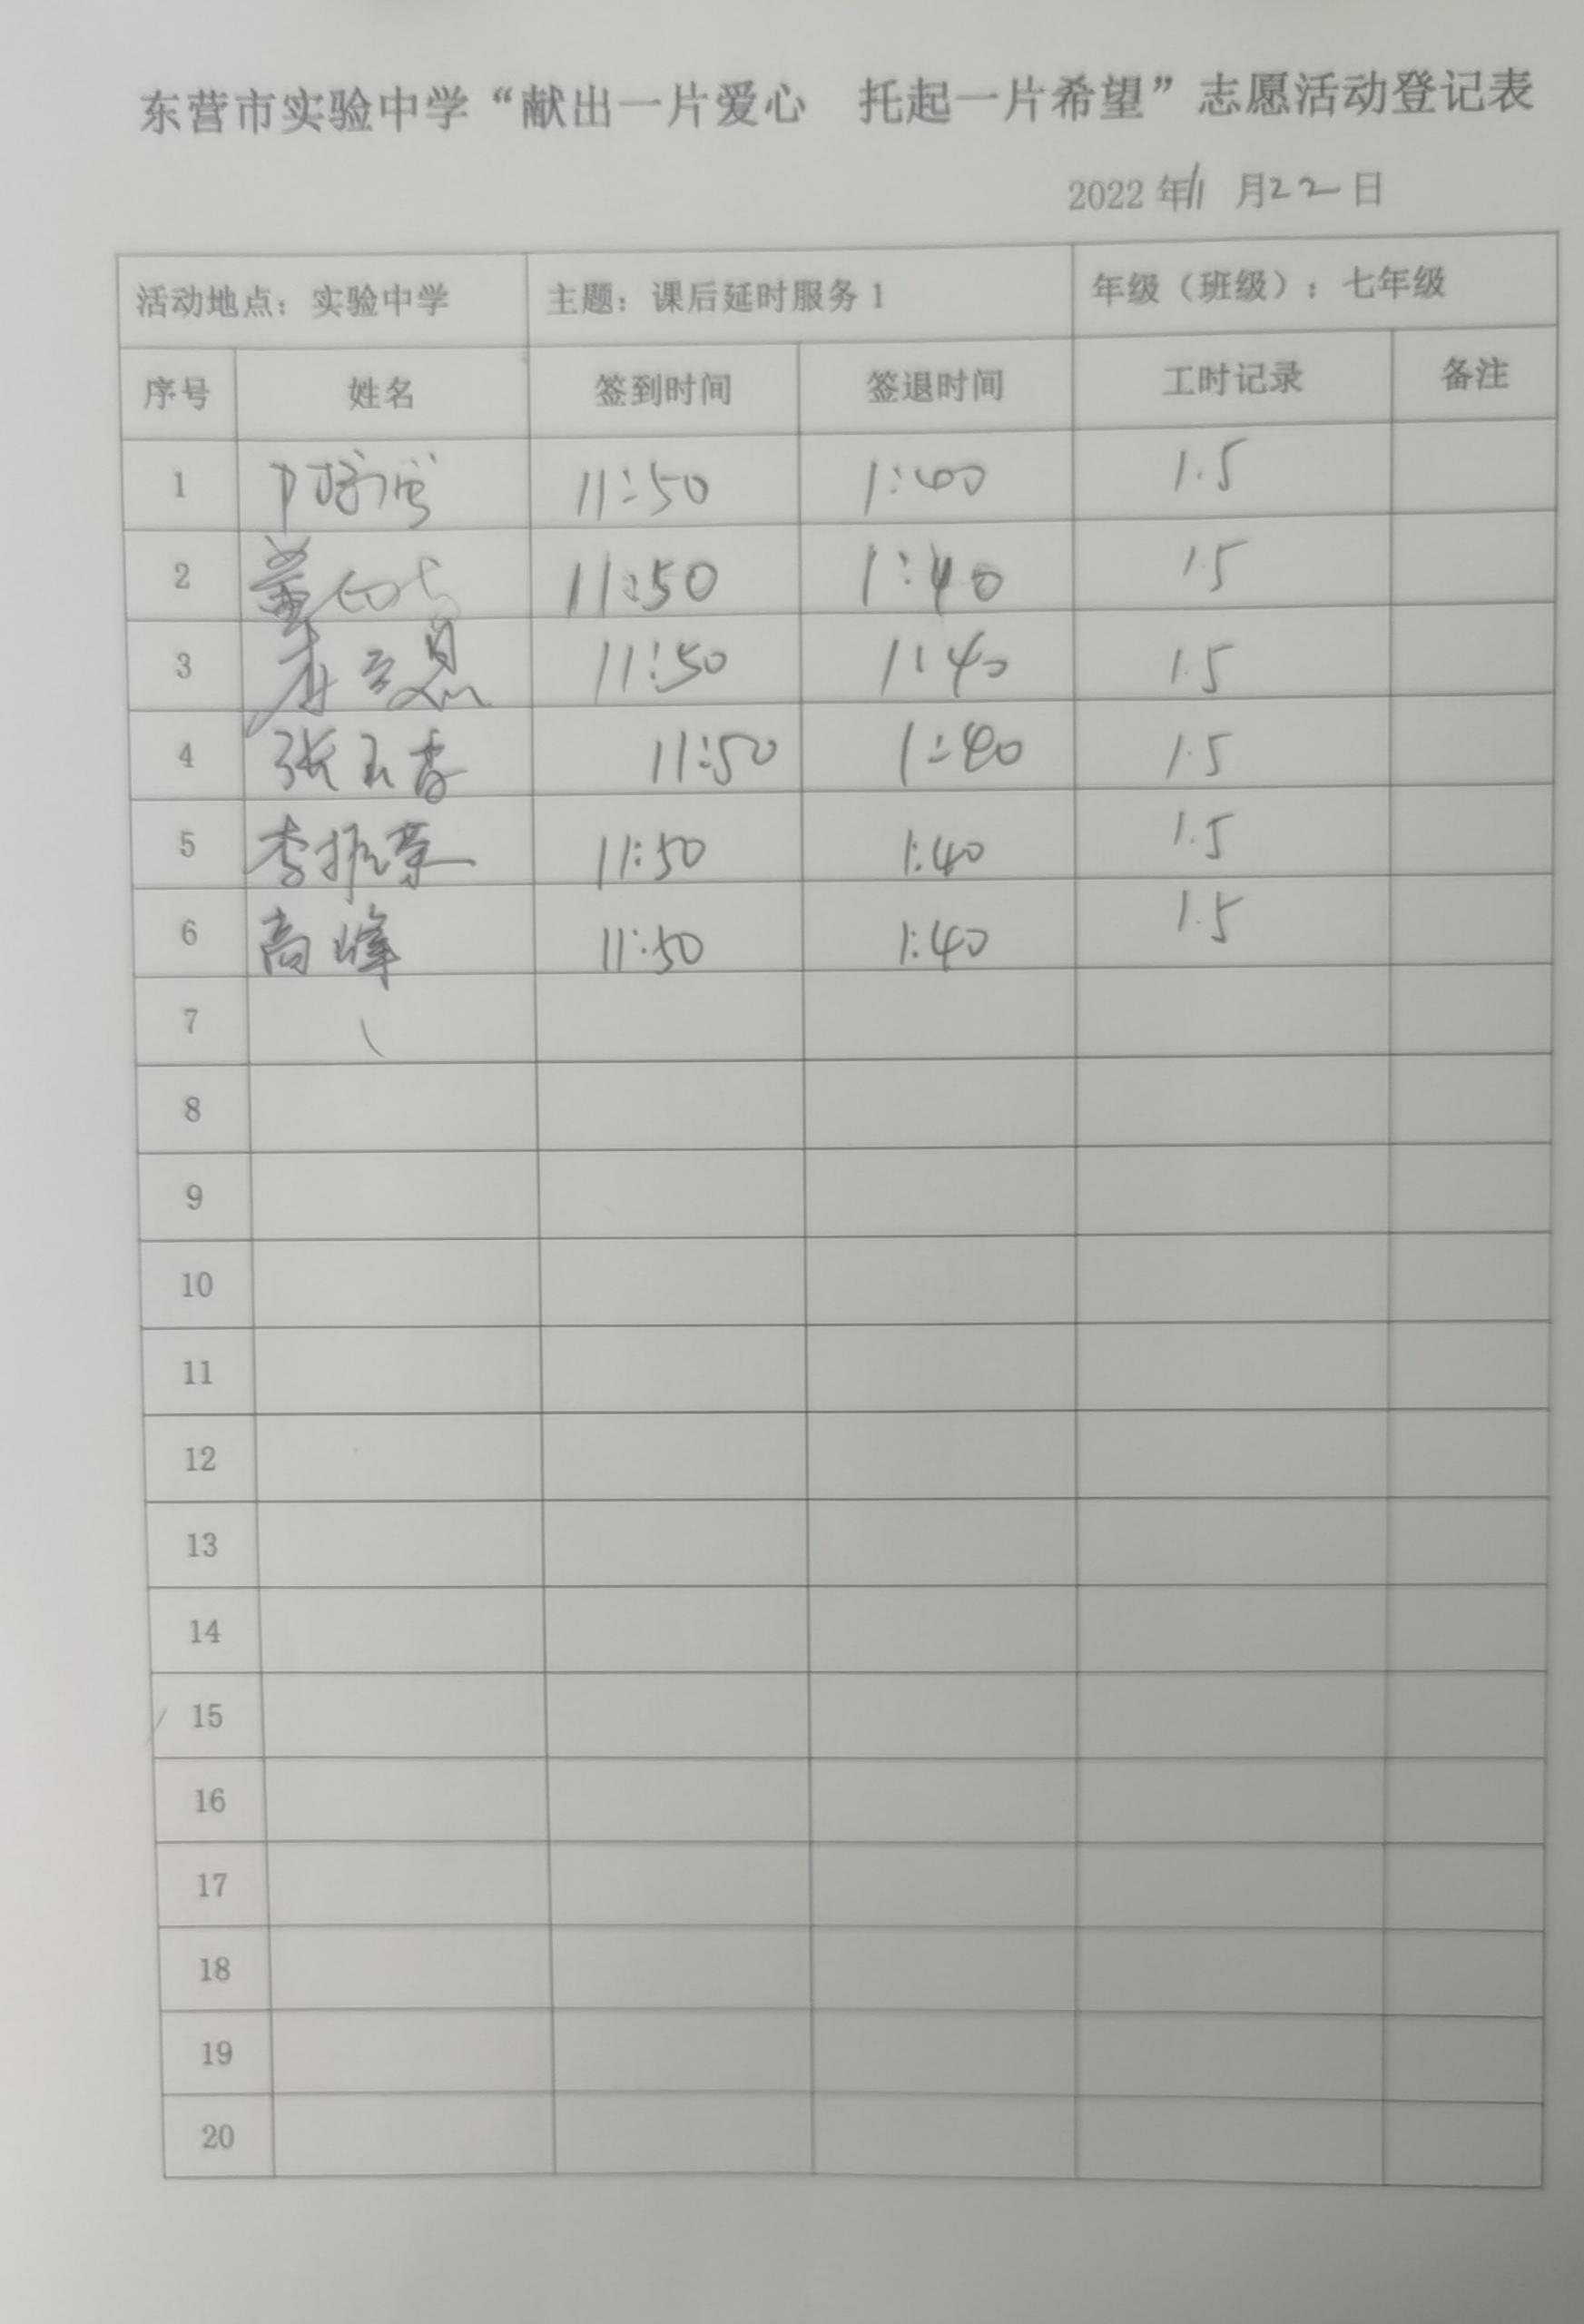 东营市实验中学“献出一片爱心 托起一片希望”志愿活动登记表
2022年11月22日
活动地点：实验中学 主题：课后延时服务1 年级（班级）：七年级
序号 姓名 签到时间 签退时间 工时记录 备注
1 11:50 1:40 1.5
2 董 11:50 1:40 1.5
3 11:50 1:40 1.5
4 张玉香 11:50 1:40 1.5
5 李振荣 11:50 1:40 1.5
6 高峰 11:50 1:40 1.5
7
8
9
10
11
12
13
14
15
16
17
18
19
20